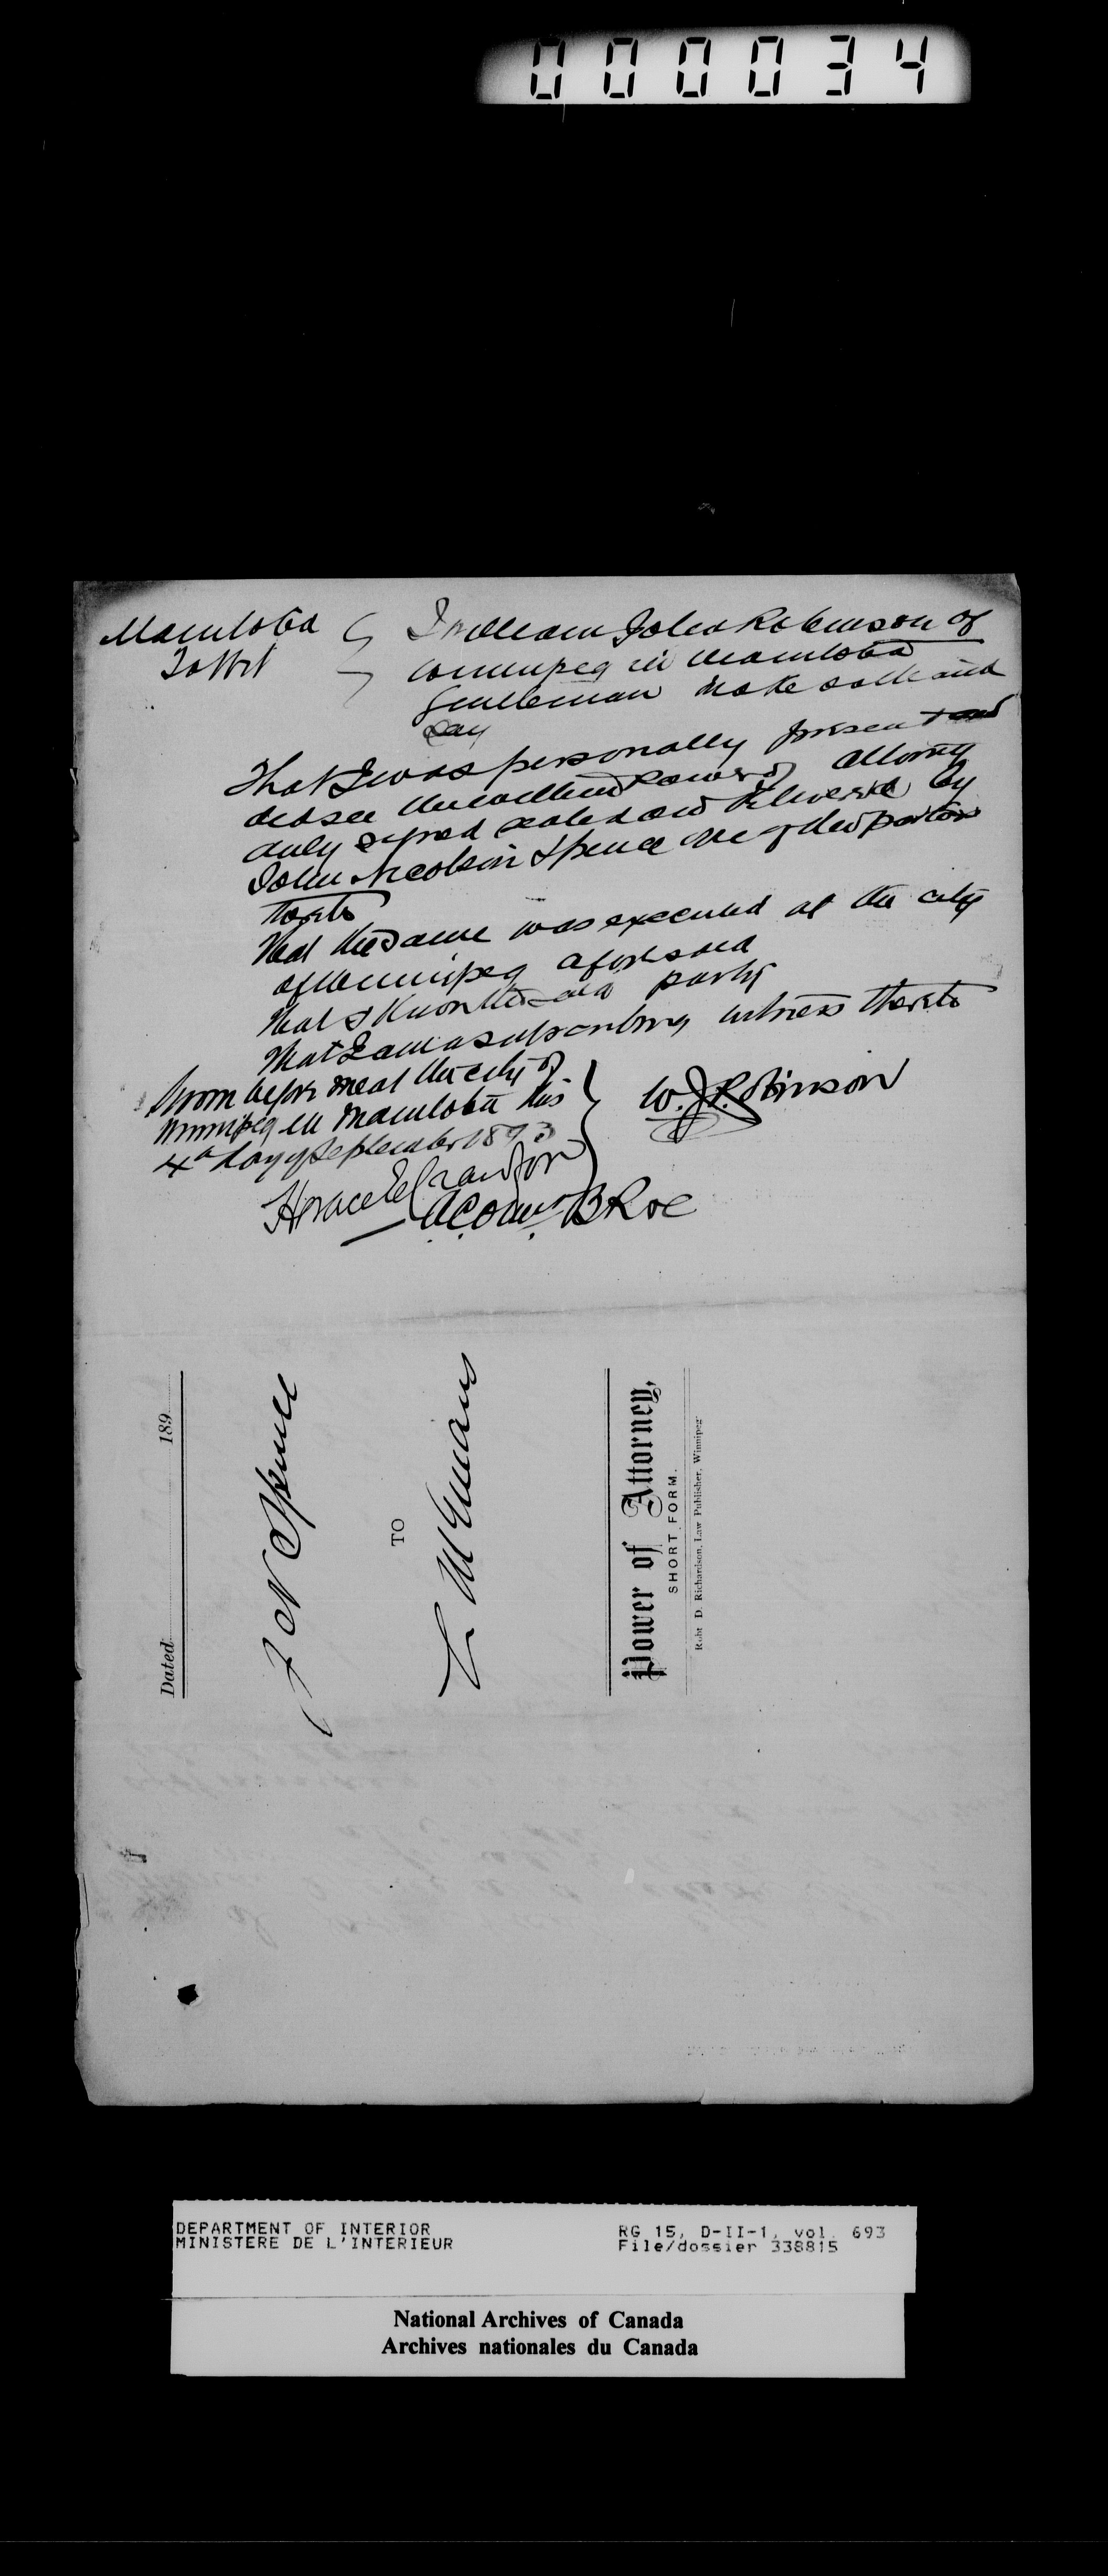 000034
Manitoba
To Wit
I William John Robinson of
Winnipeg in Manitoba
Gentleman make oath and
say
That I was personally present and
did see the within Power of Attorney
duly signed sealed and delivered by
John Spence one of the parties
thereto
That the same was executed at the city
of Winnipeg aforesaid
That I know the said party
That I am a subscribing witness thereto
Sworn before me at the city of
Winnipeg in Manitoba this
4th day of September 1893
W. J. Robinson
Horace E Crawford
A Comr B R &c
Dated 189
J N Spence
TO
Power of Attorney,
SHORT FORM.
Robt D. Richardson, Law Publisher, Winnipeg
DEPARTMENT OF INTERIOR
MINISTERE DE L'INTERIEUR
RG 15, D-II-1, vol. 693
File/dossier 338815
National Archives of Canada
Archives nationales du Canada